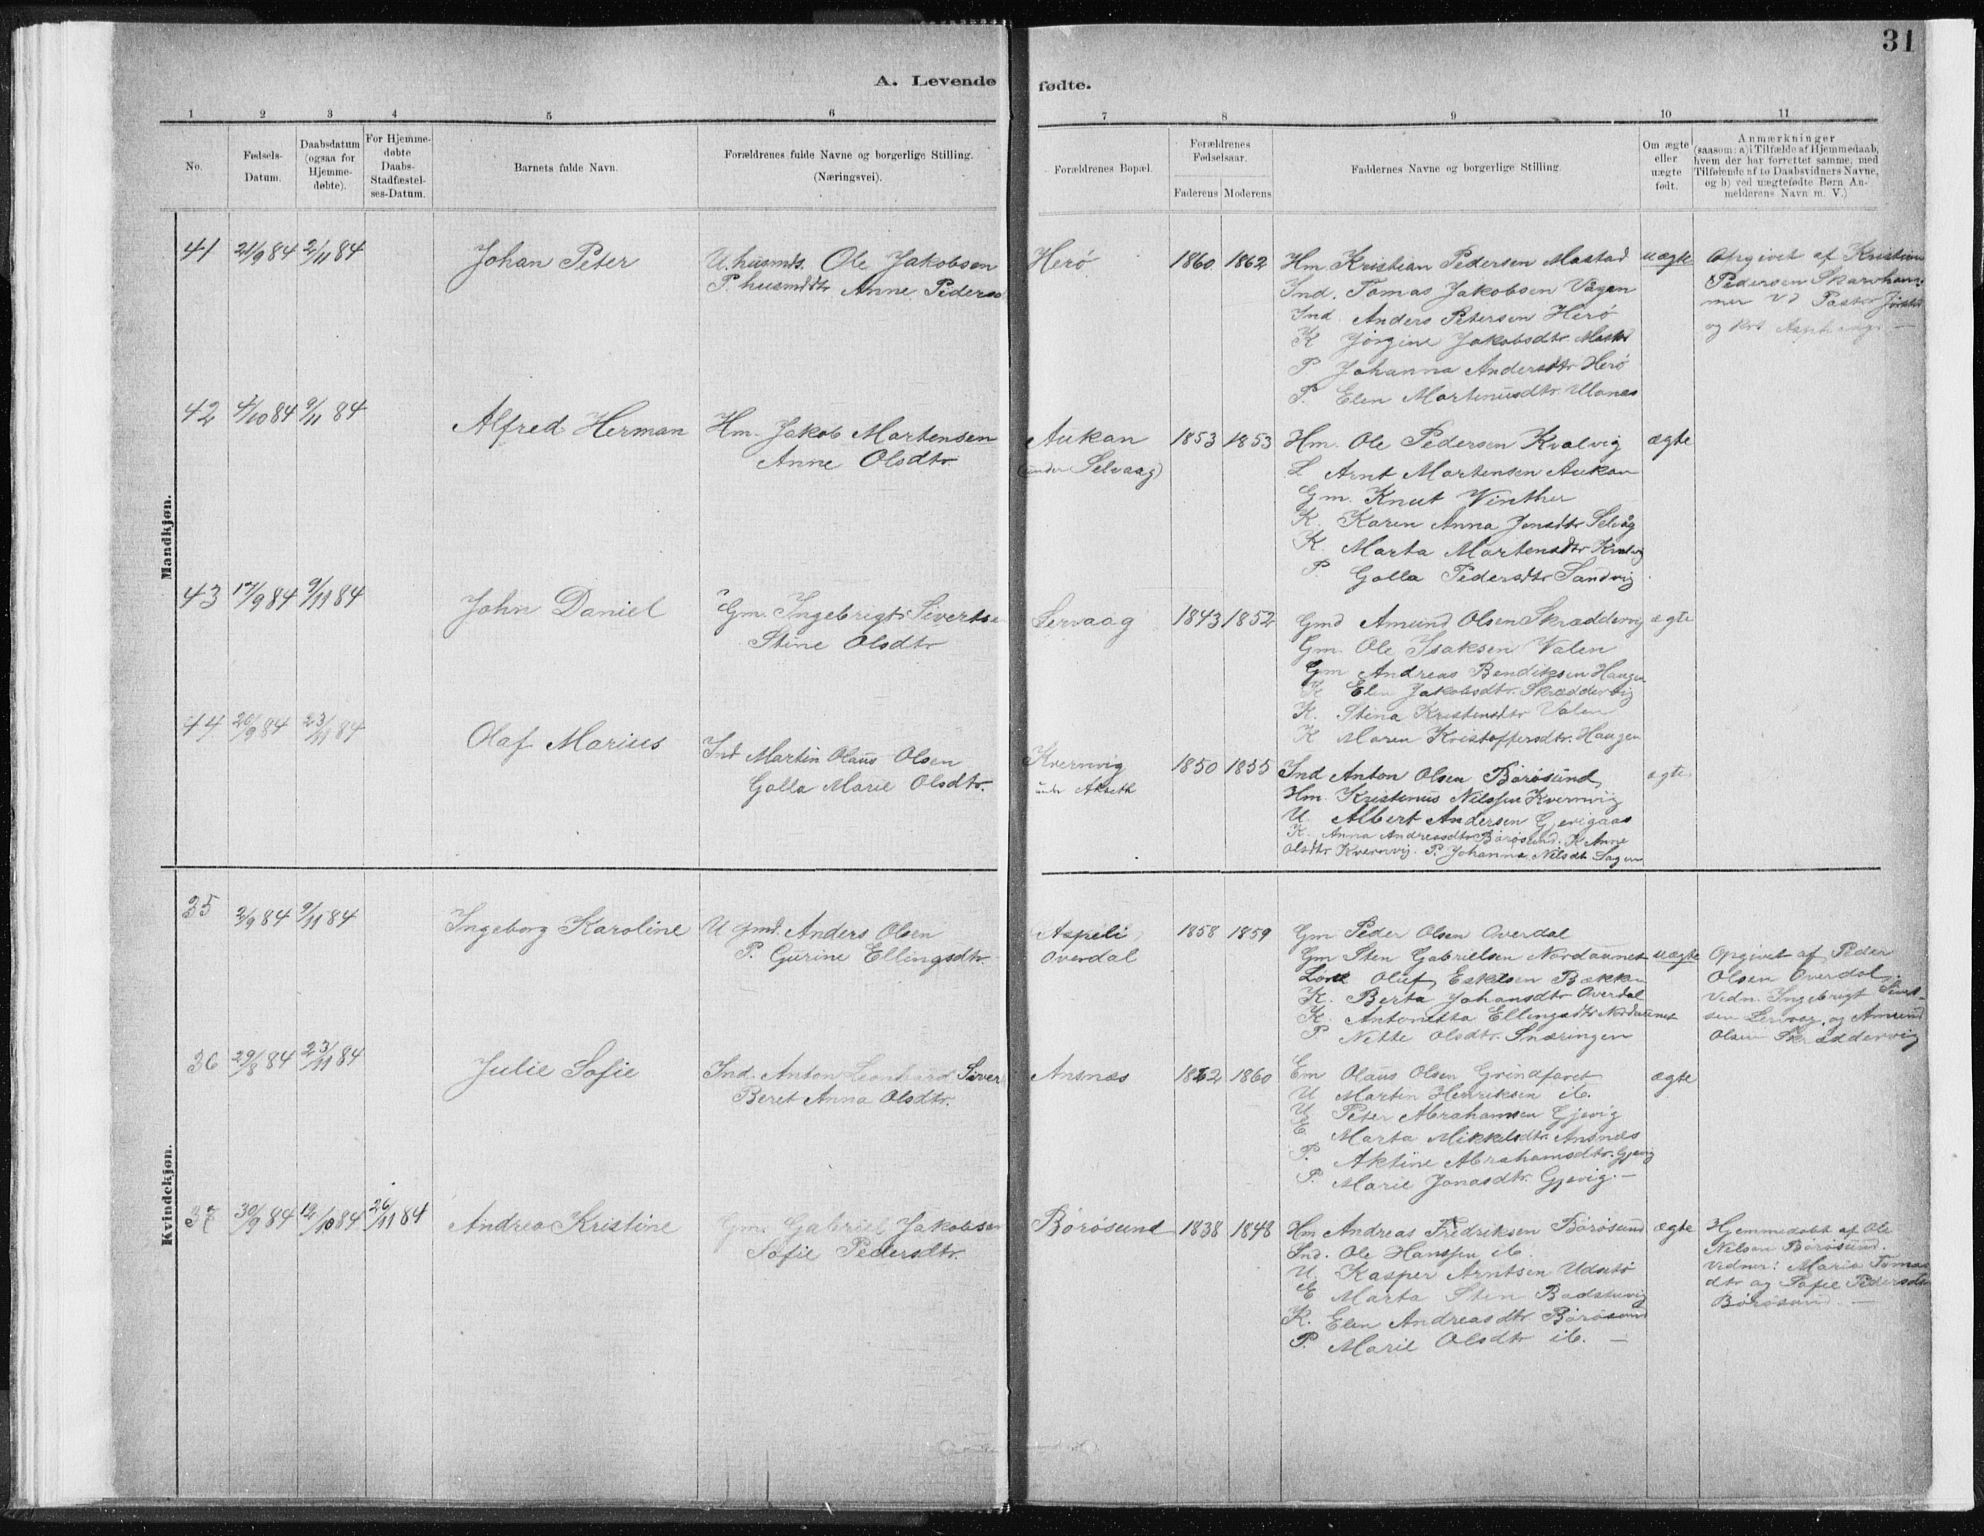 31
A. Levende fødte.
1 2 3 4 5 6 7 8 9 10 11
No.
Fødsels-
Datum.
Daabsdatum
(ogsaa for
Hjemme-
døbte).
For Hjemme-
døbte
Daabs-
Stadfæstel-
ses-Datum.
Barnets fulde Navn.
Forældrenes fulde Navne og borgerlige Stilling.
(Næringsvei).
Forældrenes Bopæl.
Forældrenes
Fødselsaar.
Faderens Moderens
Faddernes Navne og borgerlige Stilling.
Om ægte
eller
uægte
født.
Anmærkninger
(saasom: a) i Tilfælde af Hjemmedaab,
hvem der har forrettet samme, med
Tilføiende af to Daabsvidners Navne,
og b) ved uægtefødte Børn An-
melderens Navn m. V.)
Mandkjøn.
41 21/9 84 2/11 84
Johan Peter
U. husmds. Ole Jakobsen
P. husmddtr Anne Peders
Herö
1860 1862
Hm. Kristian Pedersen Mastad
Ind. Tomas Jakobsen Vågan
Ind. Anders Petersen Herö
K Jörgine Jakobsdtr. Mastad
P Johanna Andersdtr Herö
P. Elen Martinusdtr. Ulanes
uægte
Opgivet af Kristian
Pedersen Skarvham-
mer
og
42 4/10 84 9/11 84
Alfred Herman
Hm. Jakob Martensen
Anne Olsdtr.
Aukan
(under Selvaag)
1853 1853
Hm. Ole Pedersen Kvalvig
L Arnt Martensen Aukan
Gm. Knut Vinther
K. Karen Anna Jonsdtr Selvåg
K Marta Martensdtr Kvalvig
P Golla Pedersdtr Sandvig
ægte
43 17/9 84 9/11 84
John Daniel
Gm. Ingebrigt Siverts
Stine Olsdtr
Lervaag
1843 1852
Gmd Amund Olsen Skræddervig
Gm. Ole Isaksen Valen
Gm Andreas Bendiksen Haugen
K Elen Jakobsdtr. Skræddervig
K. Stina Kristensdtr Valen
K Maren Kristoffersdtr. Haugen
ægte
44 20/9 84 23/11 84
Olaf Marius
Ind Martin Olaus Olsen
Golla Marie Olsdtr.
Kvernvig
under Akseth
1850 1855
Ind Anton Olsen Börösund
Hm. Kristinus Nilssen Kvernvig
U. Albert Andersen Gjevigaas
K. Anna Andreasdtr Börösund. K Anne
Olsdtr Kvernvig. P. Johanna Nilsdtr Sagen
ægte
Kvindekjøn.
35 2/9 84 9/11 84
Ingeborg Karoline
U gmd. Anders Olsen
P. Gurine Ellingsdtr.
Aspeli
Overdal
1858 1859
Gm Peder Olsen Overdal
Gm Sten Gabrielsen Nordaunet
Oluf Eskilsen Bakken
K. Berta Johansdtr Overdal
K. Antonetta Ellingsdtr Nordaunet
P Nette Olsdtr. Snæringen
uægte
Opgivet af Peder
Olsen Overdal.
Vidn. Ingebrigt Sivert-
sen Lervaag, og Amund
Olsen Skræddervig
36 29/8 84 23/11 84
Julie Sofie
Ind. Anton Leonhard Siver
Beret Anna Olsdtr.
Ansnæs
1862 1860
Em Olaus Olsen Grindfaret
U Martin Henriksen ib.
U Peter Abrahamsen Gjevig
E Marta Mikkelsdtr. Ansnæs
P. Aktine Abrahamsdtr. Gjevig
P. Marie Jonasdtr. Gjevig. —
ægte
37 30/9 84 12/10 84 26/11 84
Andrea Kristine
Gm. Gabriel Jakobsen
Sofie Pedersdtr.
Börösund
1838 1848
Hm Andreas Fredriksen Börösund
Ind. Ole Hanssen ib.
U. Kasper Arntsen Udsetö
E Marta Sten Badstuvig
K. Elen Andreasdtr Börösund
P. Marie Olsdtr ib. —
ægte
Hjemmedöbt af Ole
Nilsen Börösund.
Vidner: Maria Tomas
dtr og Sofie Pedersdtr
Börösund. —